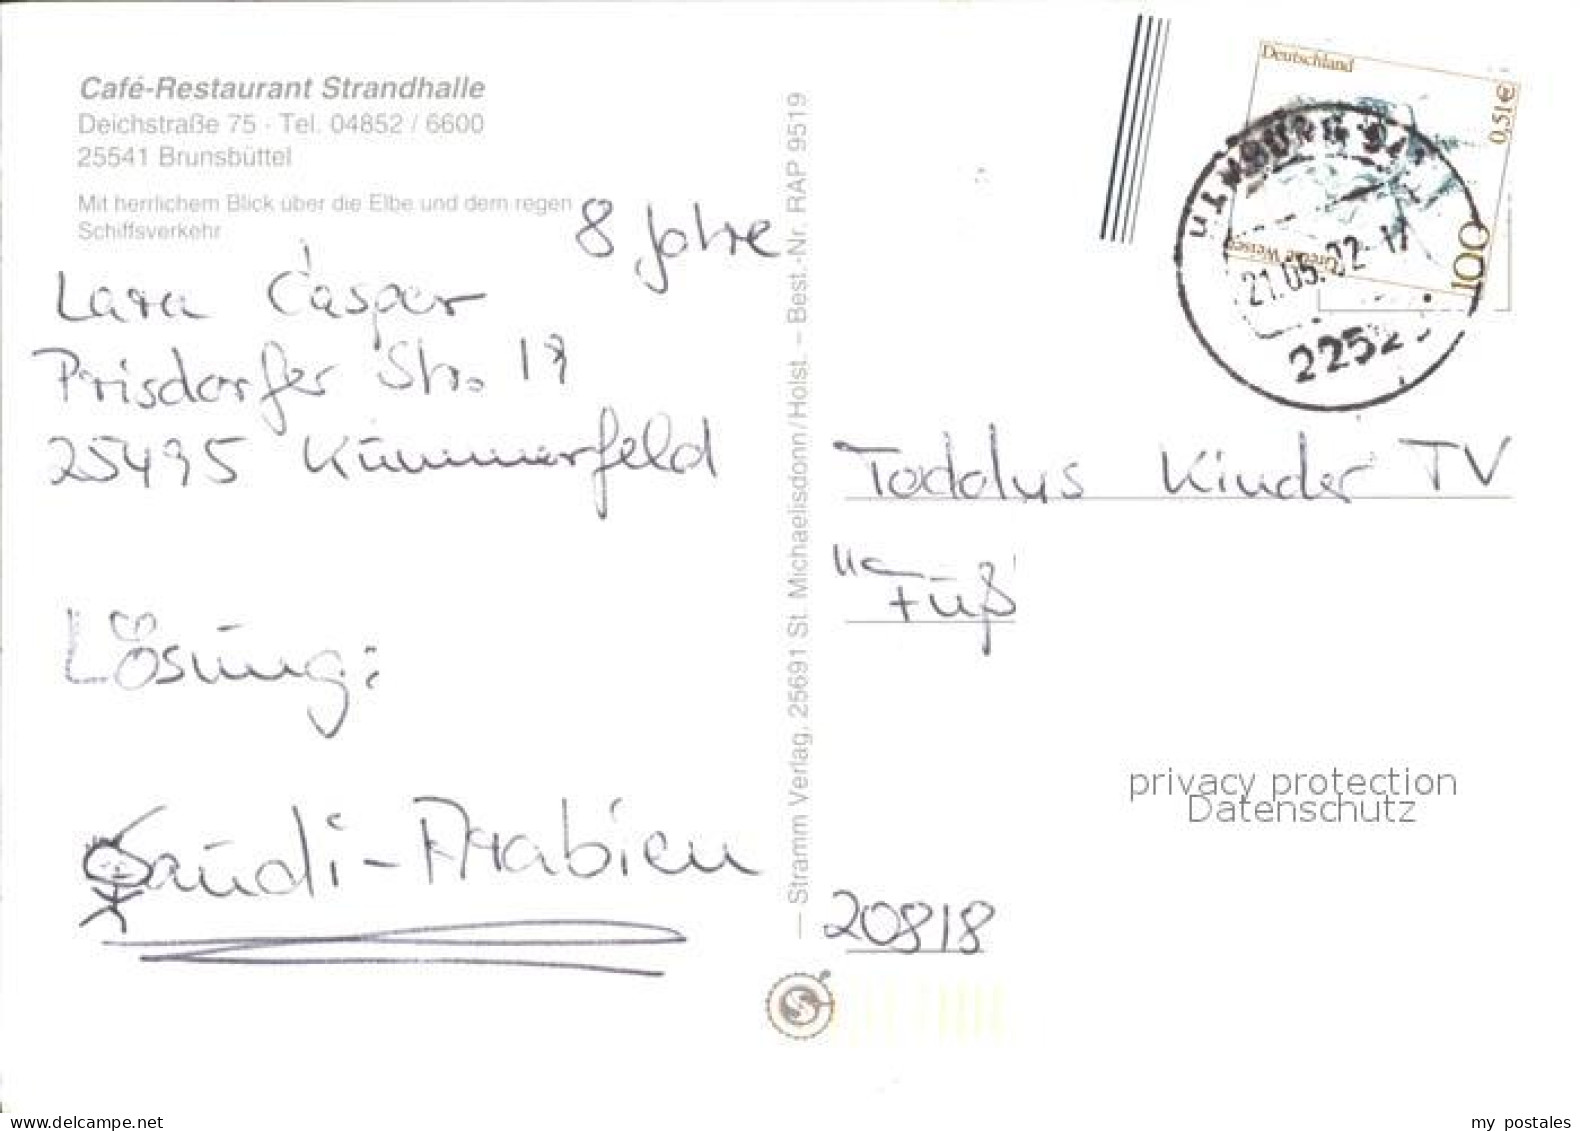 Café-Restaurant Strandhalle
Deichstraße 75 · Tel. 04852 / 6600
25541 Brunsbüttel
Mit herrlichem Blick über die Elbe und dem regen
Schiffsverkehr
8 Jahre
Lara Casper
Prisdorfer Str. 17
25495 Kummerfeld
Lösung:
Saudi-Arabien
— Stramm Verlag, 25691 St. Michaelisdonn/Holst. – Best.-Nr. RAP 9519
Deutschland
0,51 €
100
Grethe Weiser
HAMBURG
21.05.02-17
2252
Toddys Kinder TV
Tüß
20818
privacy protection
Datenschutz
www.delcampe.net
my postales